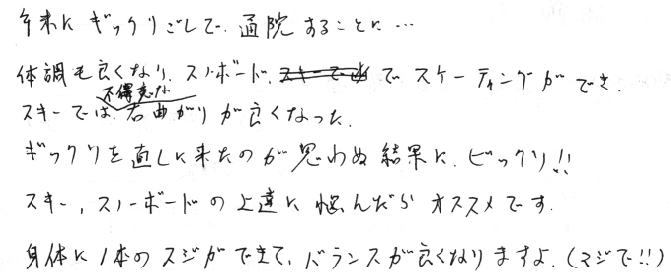 年末にギックリごしで、通院することに…
体調も良くなり、スノーボードでスケーティングができ、
スキーでは不得意な右曲がりが良くなった。
ギックリを直しに来たのが思わぬ結果に、ビックリ!!
スキー、スノーボードの上達に悩んだらオススメです。
身体に1本のスジができて、バランスが良くなりますよ。(マジで!!)